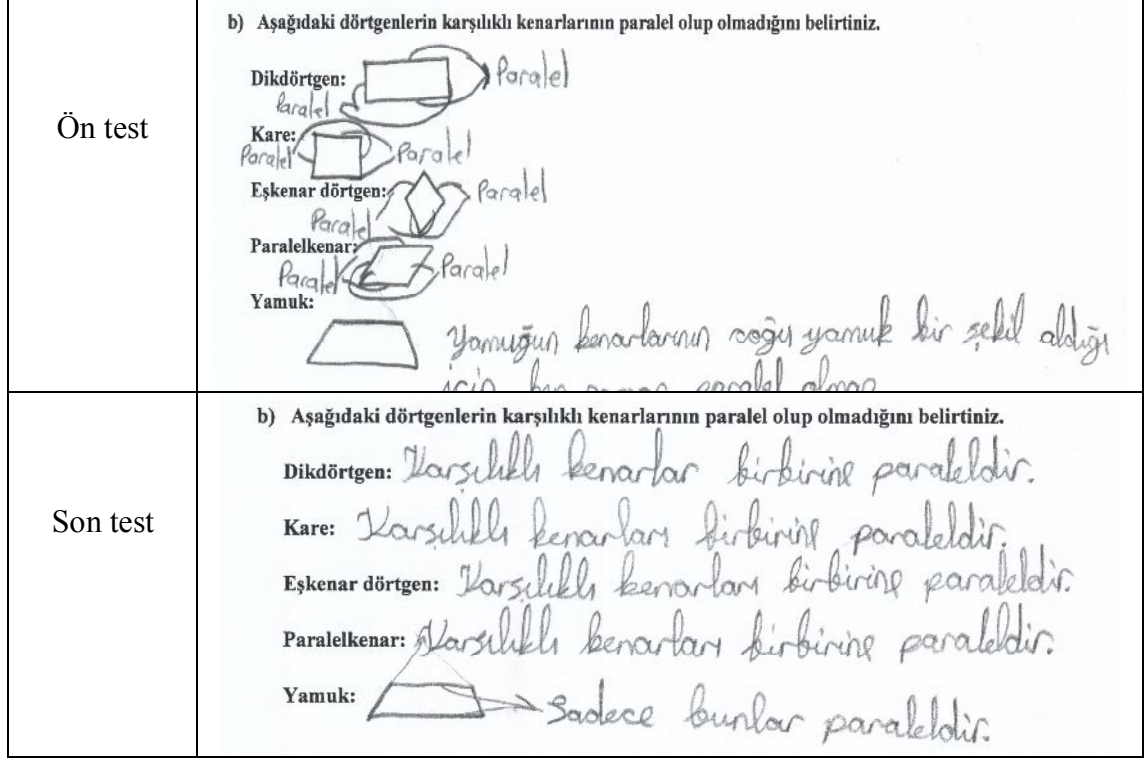 Ön test
b) Aşağıdaki dörtgenlerin karşılıklı kenarlarının paralel olup olmadığını belirtiniz.
Dikdörtgen: Paralel
Paralel
Kare:
Paralel Paralel
Eşkenar dörtgen: Paralel
Paralel
Paralelkenar:
Paralel Paralel
Yamuk:
Yamuğun kenarlarının çoğu yamuk bir şekil aldığı
için paralel olmaz
Son test
b) Aşağıdaki dörtgenlerin karşılıklı kenarlarının paralel olup olmadığını belirtiniz.
Dikdörtgen: Karşılıklı kenarlar birbirine paraleldir.
Kare: Karşılıklı kenarları birbirine paraleldir.
Eşkenar dörtgen: Karşılıklı kenarları birbirine paraleldir.
Paralelkenar: Karşılıklı kenarları birbirine paraleldir.
Yamuk: Sadece bunlar paraleldir.